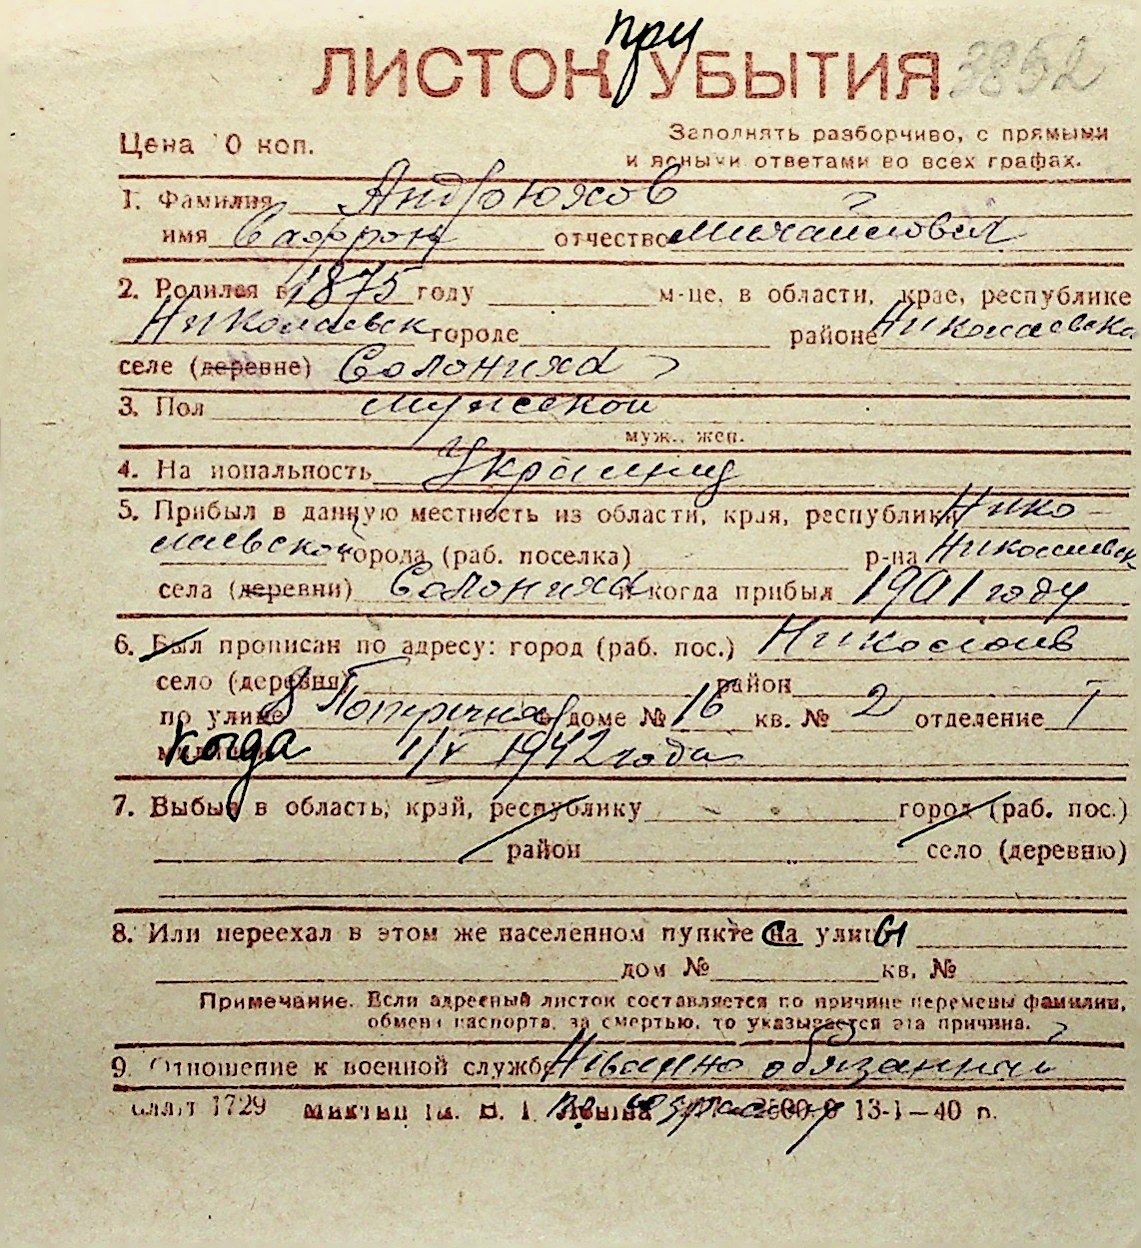 при
ЛИСТОК УБЫТИЯ 3852
Цена 10 коп. Заполнять разборчиво, с прямыми
и ясными ответами во всех графах.
1. Фамилия Андрюхов
имя Сафрон отчество Михайлович
2. Родился в 1875 году м-це, в области, крае, республике
Николаевск городе районе Николаевско
селе (деревне) Солониха
3. Пол мужской
муж., жен.
4. На иональность Украинец
5. Прибыл в данную местность из области, края, республики Нико-
лаевской города (раб. поселка) р-на Николаевск
села (деревни) Солониха и когда прибыл 1901 году
6. Был прописан по адресу: город (раб. пос.) Николаев
село (деревня) район
по улице 8 Поперечная в доме № 16 кв. № 2 отделение I
когда 1/V 1942 года
7. Выбыл в область, край, республику город (раб. пос.)
район село (деревню)
8. Или переехал в этом же населенном пункте с на улицы
дом № кв. №
Примечание. Если адресный листок составляется по причине перемены фамилии,
обмена паспорта, за смертью, то указывается эта причина.
9. Отношение к военной службе обязанный
1729 по возрасту 13-1-40 г.